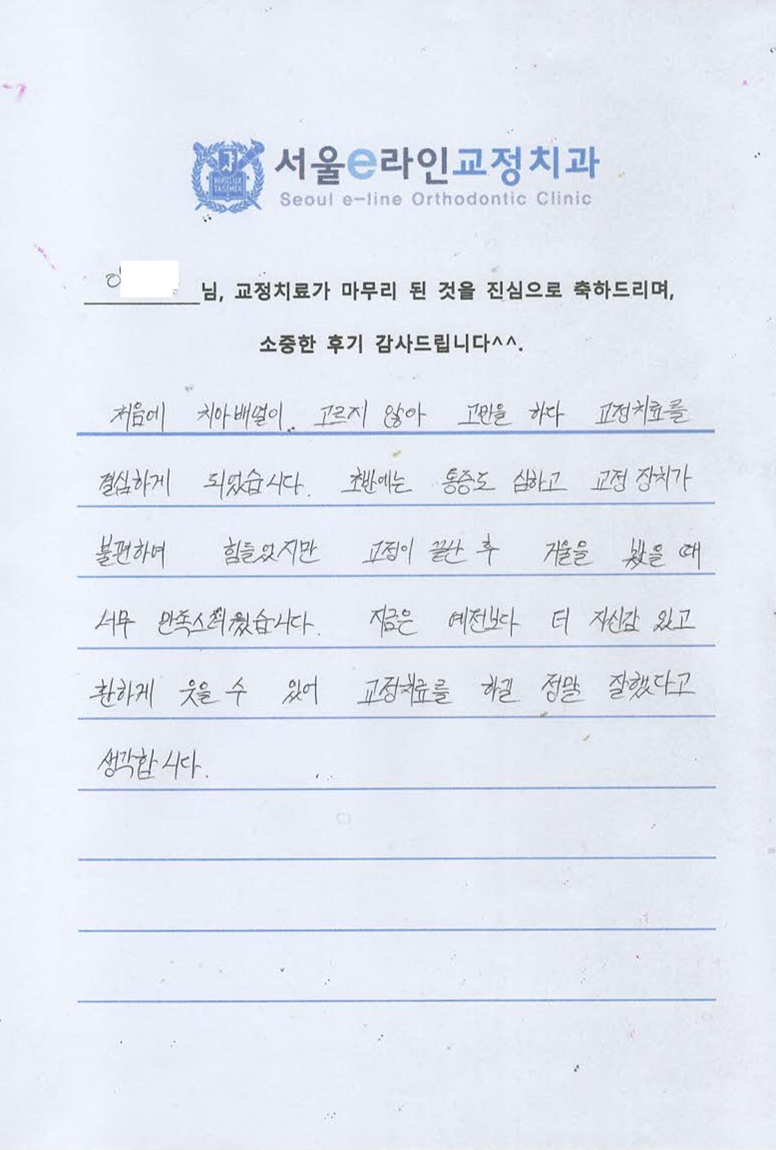 서울e라인교정치과
Seoul e-line Orthodontic Clinic
님, 교정치료가 마무리 된 것을 진심으로 축하드리며,
소중한 후기 감사드립니다^^.
처음에 치아배열이 고르지 않아 고민을 하다 교정치료를
결심하게 되었습니다. 초반에는 통증도 심하고 교정 장치가
불편하여 힘들었지만 교정이 끝난 후 거울을 봤을 때
너무 만족스러웠습니다. 지금은 예전보다 더 자신감 있고
환하게 웃을 수 있어 교정치료를 하길 정말 잘했다고
생각합니다.